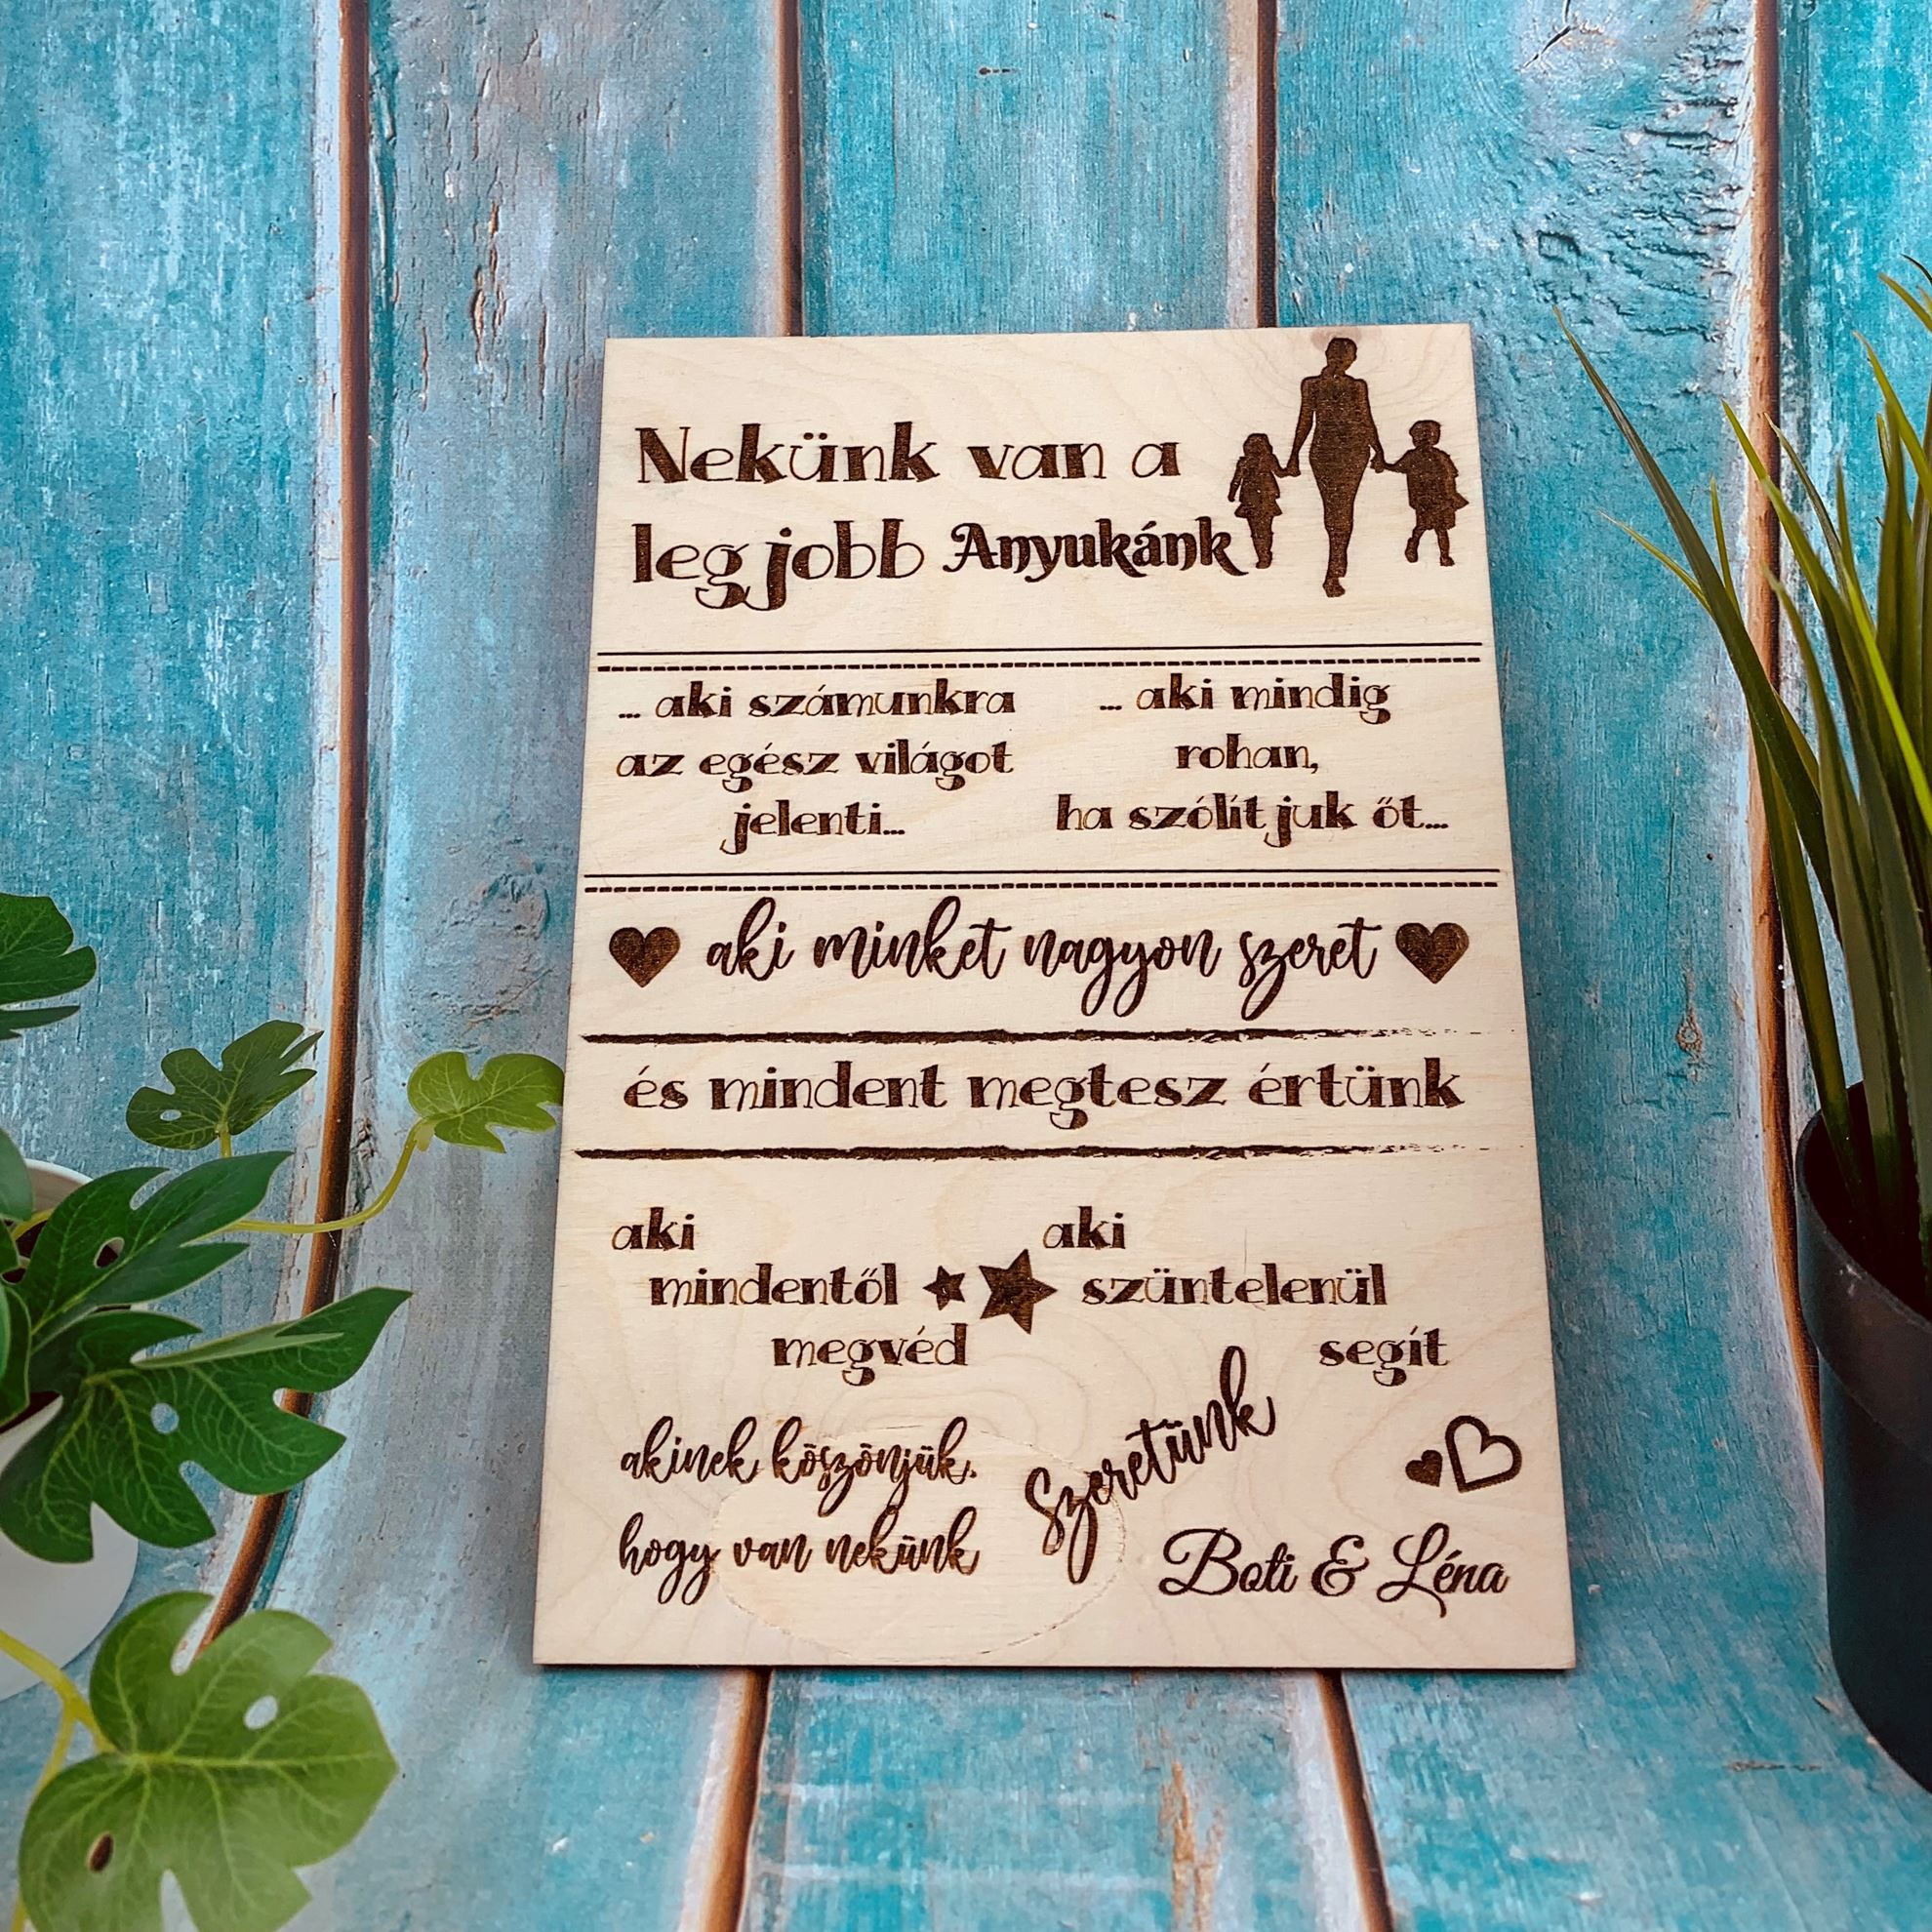 Nekünk van a
legjobb Anyukánk
... aki számunkra
az egész világot
jelenti...
... aki mindig
rohan,
ha szólítjuk őt...
aki minket nagyon szeret
és mindent megtesz értünk
aki
mindentől
megvéd
aki
szüntelenül
segít
akinek köszönjük,
hogy van nekünk
Szeretünk
Boti & Léna